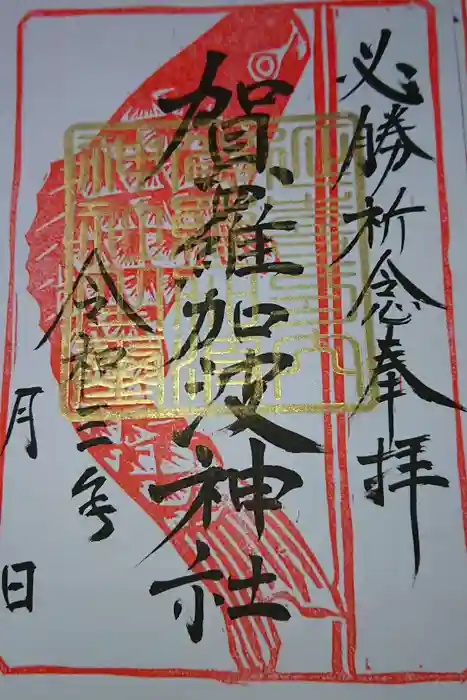 必勝祈念奉拝
賀羅加波神社
令和三年
月 日